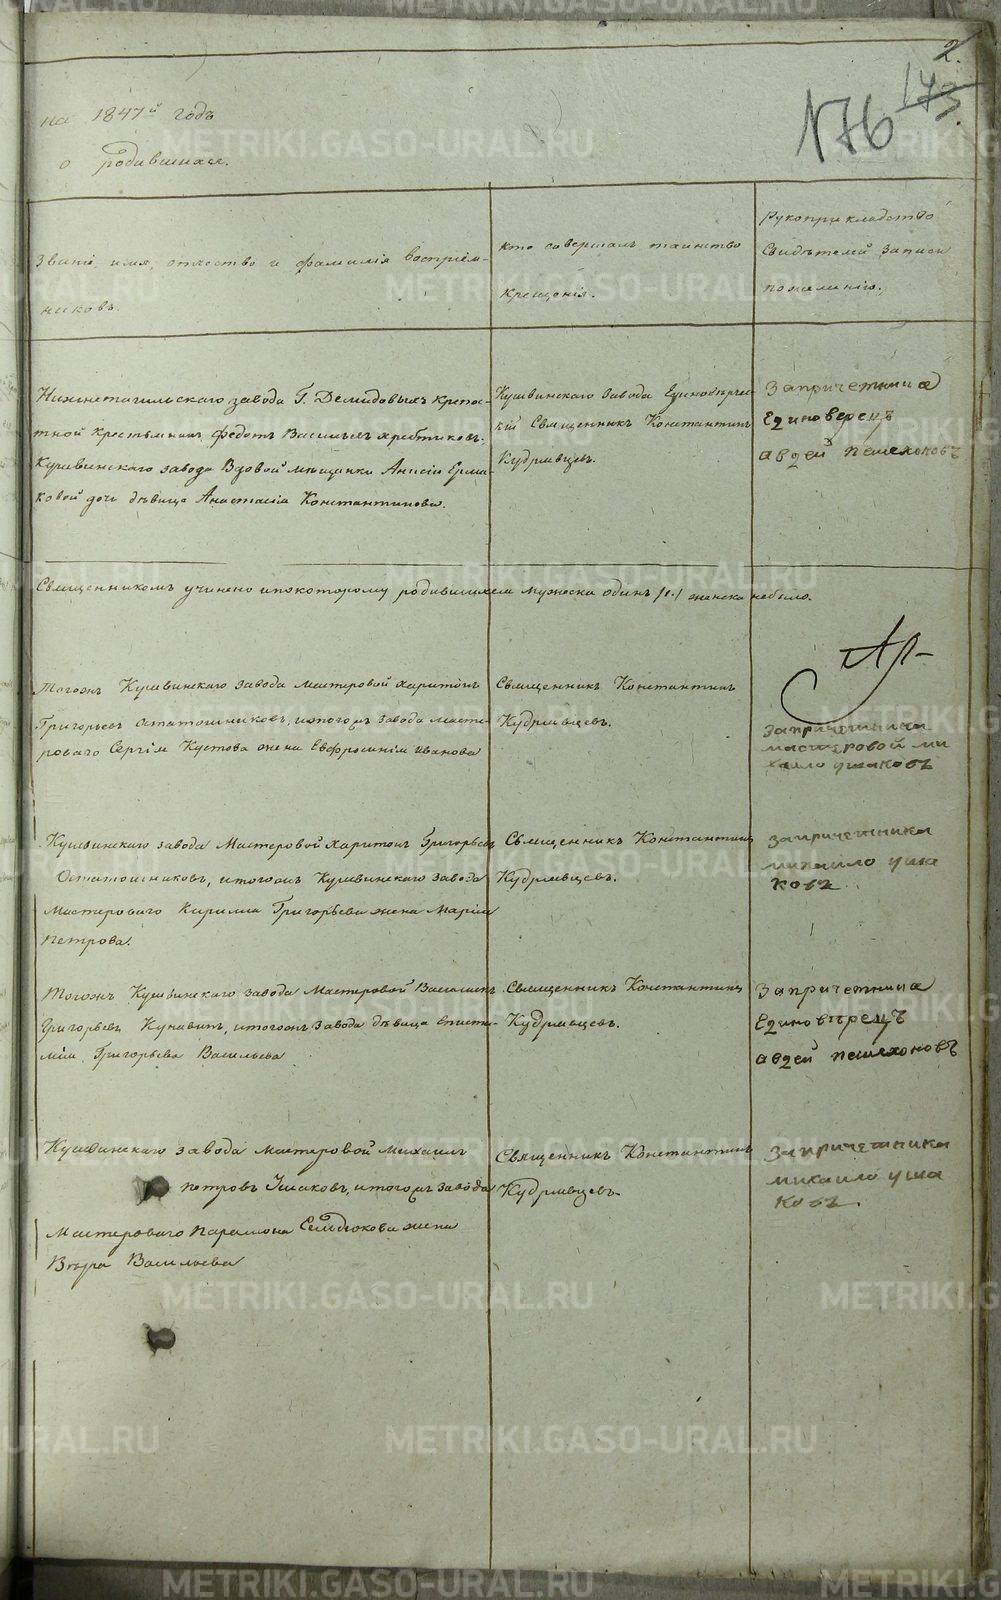 2.
173.
176
на 1847й годъ
о родившихся.
Званіе, имя, отчество и фамилія воспріем-
никовъ.
кто совершалъ таинство
крещенія.
Рукоприкладство
свидѣтелей записи
по желанію.
Нижнетагильскаго завода Г. Демидовыхъ крепос-
тной крестьянинъ Федотъ Васильевъ Хребтиковъ.
Кушвинскаго завода Вдовой мещанки Анисіи Ерма-
ковой дочь дѣвица Анастасія Константинова.
Кушвинскаго завода Единовѣрчес-
кій Священникъ Константинъ
Кудрявцевъ.
За причетника
Единоверецъ
авдей пешехоновъ
Священникомъ учинено и по которому родившихся мужеска одинъ /1./ женска небыло.
Тогожъ Кушвинскаго завода мастеровой Харитонъ
Григорьевъ Остатошниковъ, и тогожъ завода масте-
роваго Сергія Кустова жена Евфросинія Иванова
Священникъ Константинъ
Кудрявцевъ.
За причетника
мастеровой ми
хаило ушаковъ
Кушвинскаго завода Мастеровой Харитонъ Григорьевъ
Остатошниковъ, и тогожъ Кушвинскаго завода
Мастероваго Кирилла Григорьева жена Марія
Петрова.
Священникъ Константинъ
Кудрявцевъ.
За причетника
михаило уша
ковъ
Тогожъ Кушвинскаго завода Мастеровой Василій
Григорьевъ Кунавинъ, и тогожъ завода дѣвица Еписти-
мія Григорьева Васильева
Священникъ Константинъ
Кудрявцевъ.
За причетника
Единовѣрецъ
авдей пешехоновъ
Кушвинскаго завода мастеровой Михаилъ
Петровъ Ушаковъ, и тогожъ завода
Мастероваго Парамона Семдюкова жена
Вѣра Васильева
Священникъ Константинъ
Кудрявцевъ.
За причетника
михаило уша
ковъ.
METRIKI.GASO-URAL.RU